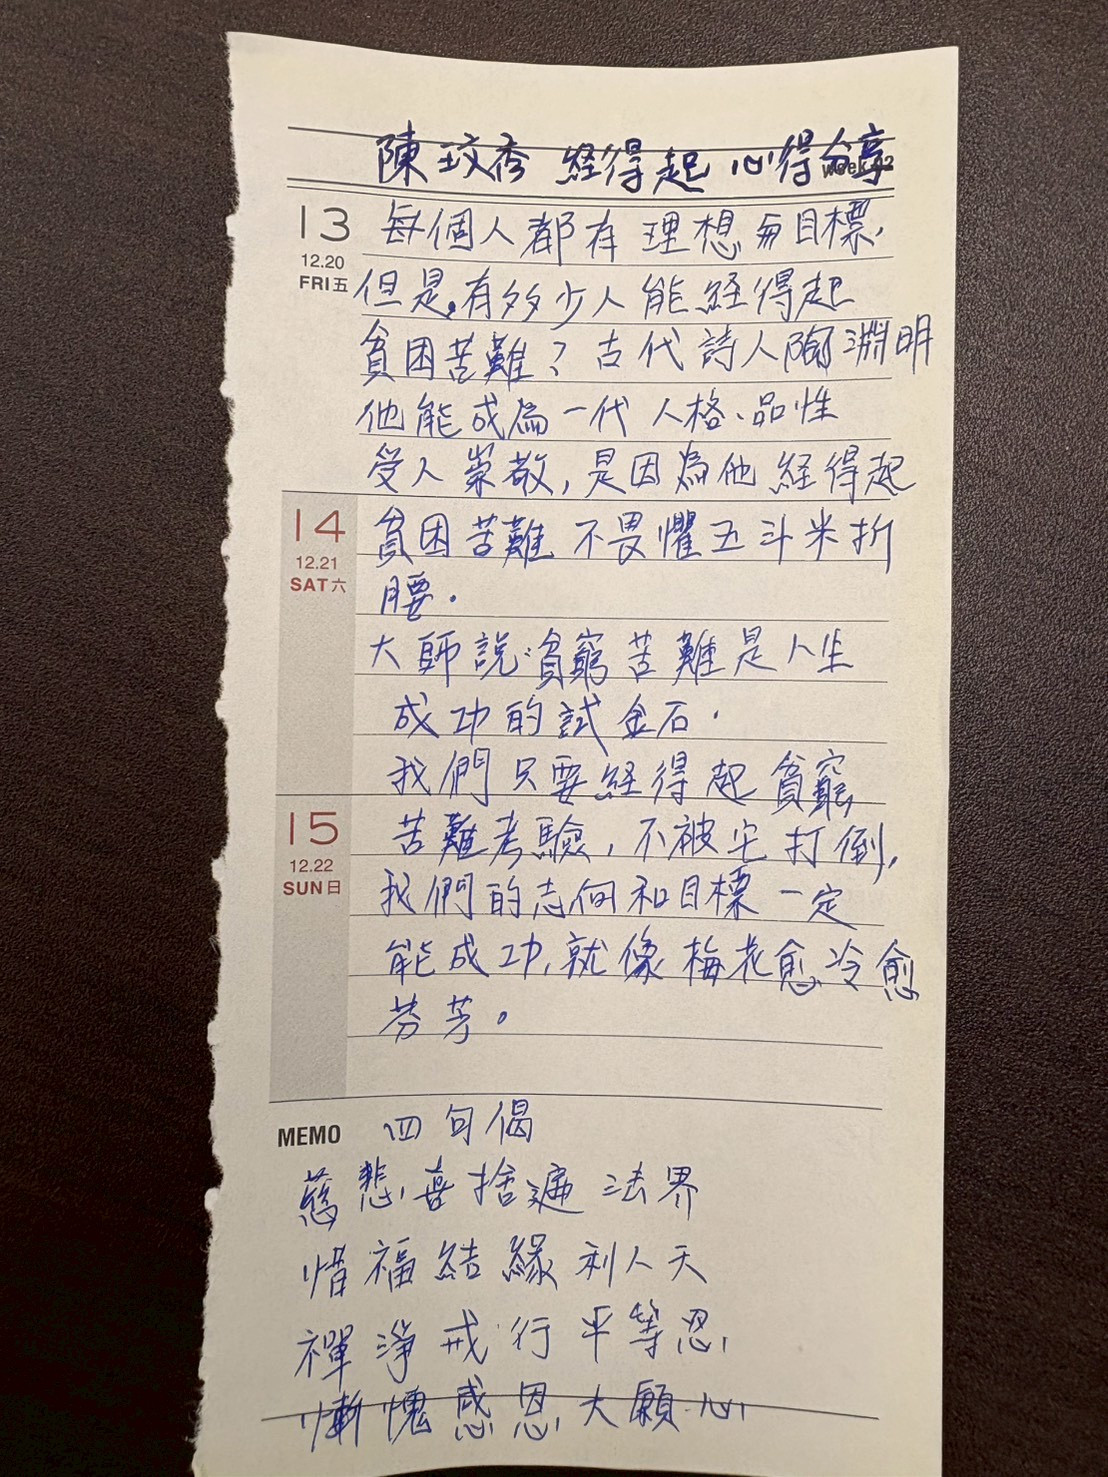 陳玟秀 経得起 心得分享
13 每個人都有理想與目標,
12.20
FRI五 但是,有多少人能経得起
貧困苦難？古代詩人陶淵明
他能成為一代人格、品性
受人崇敬,是因為他経得起
14 貧困苦難 不畏懼五斗米折
12.21
SAT六 腰.
大師說:貧窮苦難是人生
成功的試金石.
我們只要経得起貧窮
15 苦難考驗,不被它打倒,
12.22
SUN日 我們的志向和目標一定
能成功,就像梅花愈冷愈
芬芳。
MEMO 四句偈
慈悲喜捨遍法界
惜福結緣利人天
禪淨戒行平等忍
慚愧感恩大願心